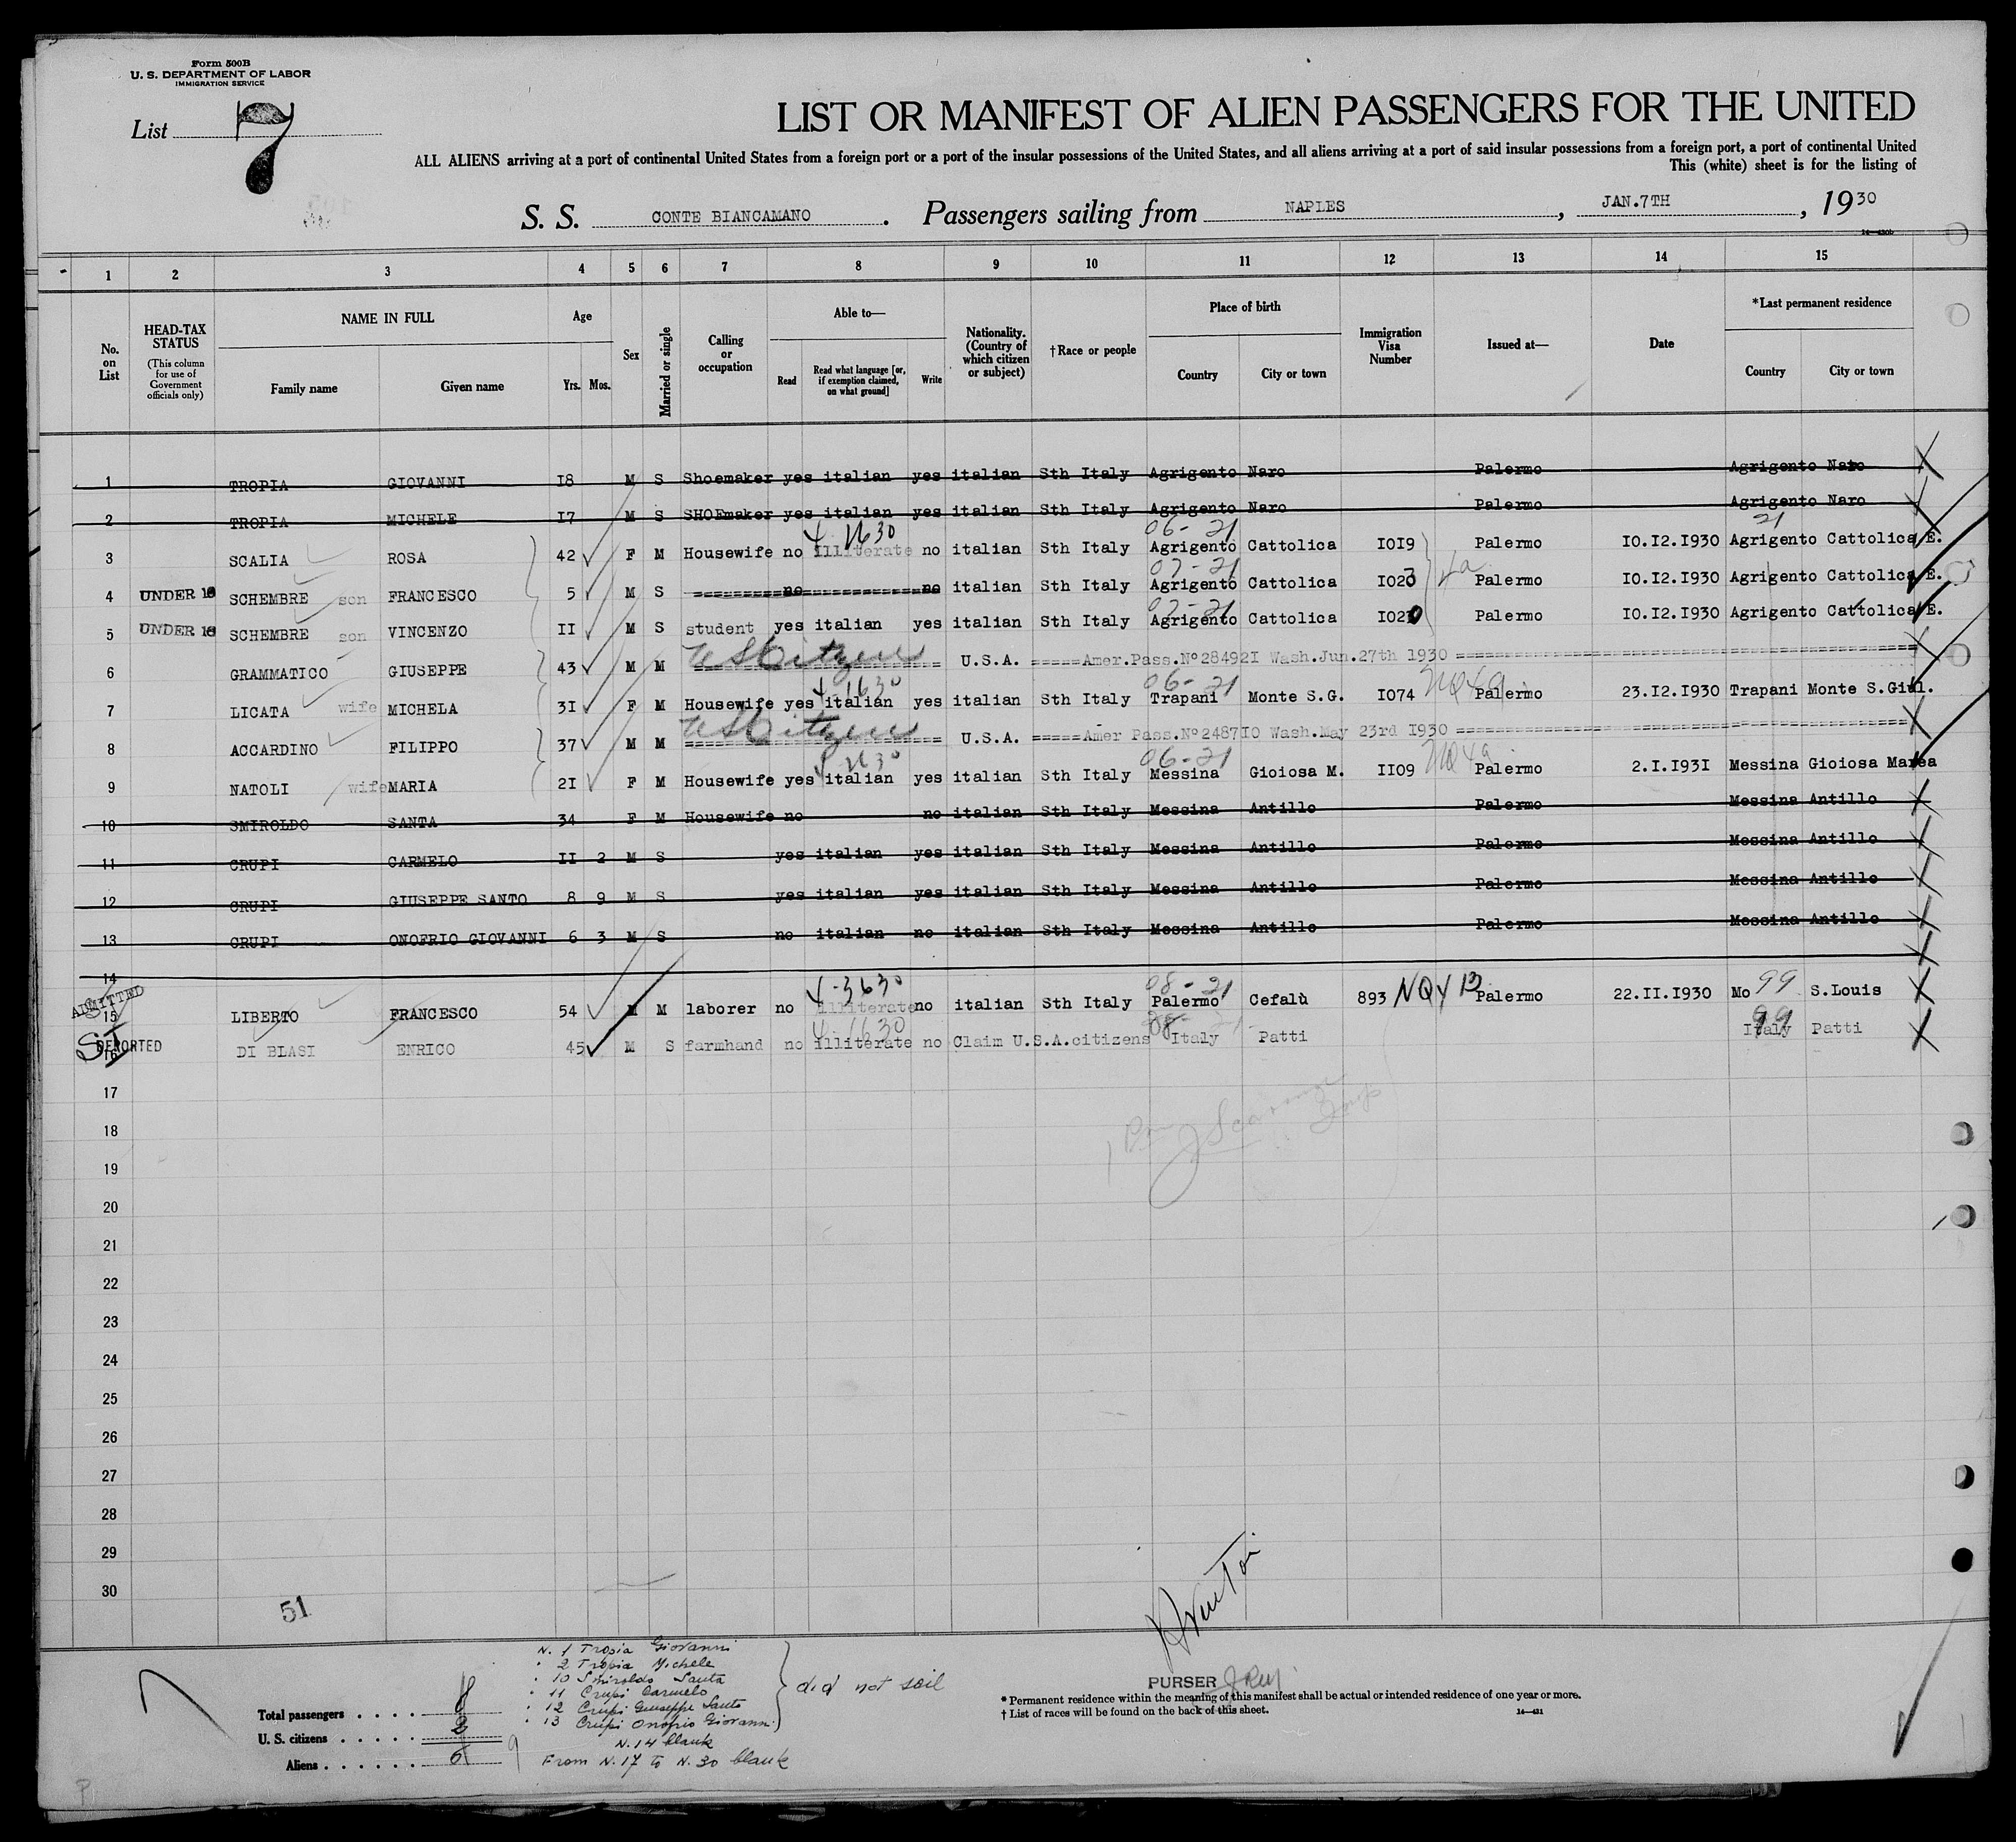 Form 500B
U. S. DEPARTMENT OF LABOR
IMMIGRATION SERVICE
List 7
LIST OR MANIFEST OF ALIEN PASSENGERS FOR THE UNITED
ALL ALIENS arriving at a port of continental United States from a foreign port or a port of the insular possessions of the United States, and all aliens arriving at a port of said insular possessions from a foreign port, a port of continental United
This (white) sheet is for the listing of
S. S. CONTE BIANCAMANO. Passengers sailing from NAPLES, JAN.7TH, 1930
14—430b
1 2 3 4 5 6 7 8 9 10 11 12 13 14 15
No. on List
HEAD-TAX STATUS (This column for use of Government officials only)
NAME IN FULL Family name Given name
Age Yrs. Mos.
Sex
Married or single
Calling or occupation
Able to— Read Read what language [or, if exemption claimed, on what ground] Write
Nationality. (Country of which citizen or subject)
†Race or people
Place of birth Country City or town
Immigration Visa Number
Issued at—
Date
*Last permanent residence Country City or town
1 TROPIA GIOVANNI I8 M S Shoemaker yes italian yes italian Sth Italy Agrigento Naro Palermo Agrigento Naro
2 TROPIA MICHELE I7 M S SHOEmaker yes italian yes italian Sth Italy Agrigento Naro Palermo Agrigento Naro
06- 21 21
3 SCALIA ROSA 42 F M Housewife no illiterate no italian Sth Italy Agrigento Cattolica I0I9 Palermo I0.I2.I930 Agrigento Cattolica E.
07-21
4 UNDER 16 SCHEMBRE son FRANCESCO 5 M S no no italian Sth Italy Agrigento Cattolica Palermo I0.I2.I930 Agrigento Cattolica E.
07-21
5 UNDER 16 SCHEMBRE son VINCENZO II M S student yes italian yes italian Sth Italy Agrigento Cattolica Palermo I0.I2.I930 Agrigento Cattolica E.
US Citizen
6 GRAMMATICO GIUSEPPE 43 M M U.S.A. =====Amer.Pass.Nº28492I Wash.Jun.27th I930
4-1630 06-21 NQ4a
7 LICATA wife MICHELA 3I F M Housewife yes italian yes italian Sth Italy Trapani Monte S.G. I074 Palermo 23.I2.I930 Trapani Monte S.Giul.
US Citizen
8 ACCARDINO FILIPPO 37 M M U.S.A. =====Amer Pass.Nº2487I0 Wash.May 23rd I930
06-21 NQ4a
9 NATOLI wife MARIA 2I F M Housewife yes italian yes italian Sth Italy Messina Gioiosa M. II09 Palermo 2.I.I93I Messina Gioiosa Marea
10 SMIROLDO SANTA 34 F M Housewife no no italian Sth Italy Messina Antillo Palermo Messina Antillo
11 CRUPI CARMELO II 2 M S yes italian yes italian Sth Italy Messina Antillo Palermo Messina Antillo
12 CRUPI GIUSEPPE SANTO 8 9 M S yes italian yes italian Sth Italy Messina Antillo Palermo Messina Antillo
13 CRUPI ONOFRIO GIOVANNI 6 3 M S no italian no italian Sth Italy Messina Antillo Palermo Messina Antillo
14
4-3630 08-21 99
ADMITTED 15 LIBERTO FRANCESCO 54 M M laborer no illiterate no italian Sth Italy Palermo Cefalù 893 Palermo 22.II.I930 Mo S.Louis
4-1630 99
SI DEPORTED 16 DI BLASI ENRICO 45 M S farmhand no illiterate no Claim U.S.A.citizens Italy Patti Italy Patti
17
18
19
20
21
22
23
24
25
26
27
28
29
30
51
N. 1 Tropia Giovanni
" 2 Tropia Michele
" 10 Smiroldo Santa
" 11 Crupi Carmelo
" 12 Crupi Giuseppe Santo
" 13 Crupi Onofrio Giovanni
did not sail
N.14 blank
From N.17 to N.30 blank
Total passengers
U. S. citizens
Aliens
PURSER
* Permanent residence within the meaning of this manifest shall be actual or intended residence of one year or more.
† List of races will be found on the back of this sheet.
14—431